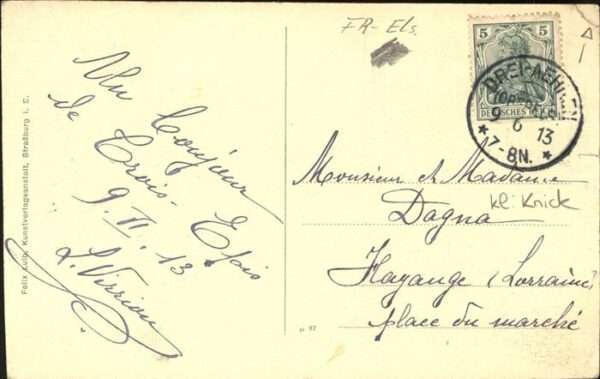 FR-Els.
5 5
DEUTSCHES REICH
DREI-AEHREN
9 6 13
* 7-8N. *
Un bonjour
de
Trois-Epis
9. VI. 13
Monsieur et Madame
Dagna
kl. Knick
Hayange (Lorraine)
place du marché
Felix Luib, Kunstverlagsanstalt, Straßburg i. E.